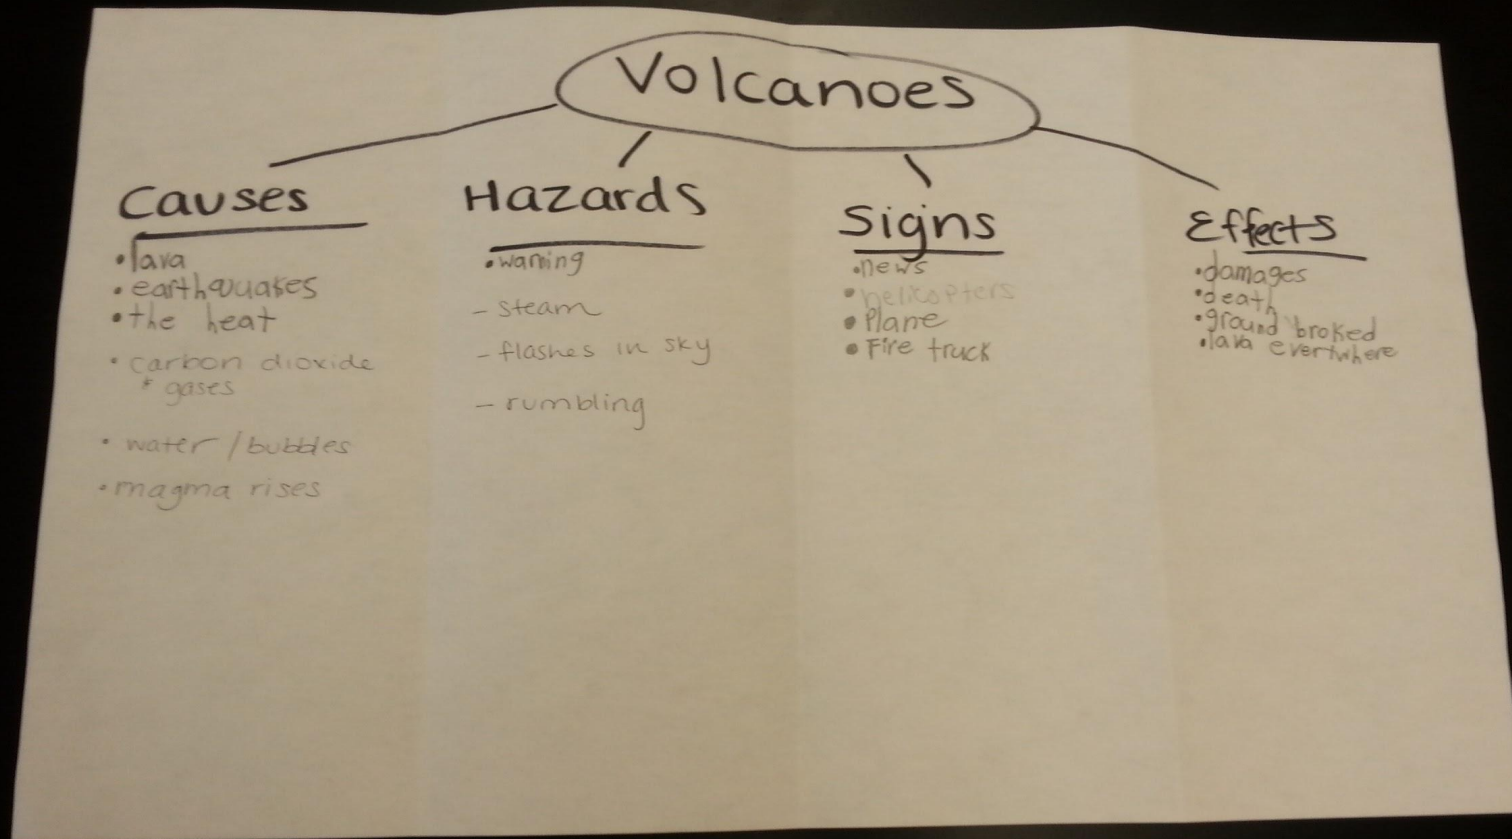 Volcanoes
Causes
• lava
• earthquakes
• the heat
• carbon dioxide
* gases
• water / bubbles
• magma rises
Hazards
• warning
- steam
- flashes in sky
- rumbling
Signs
• news
• helicopters
• Plane
• Fire truck
Effects
• damages
• death
• ground broked
• lava evertwhere